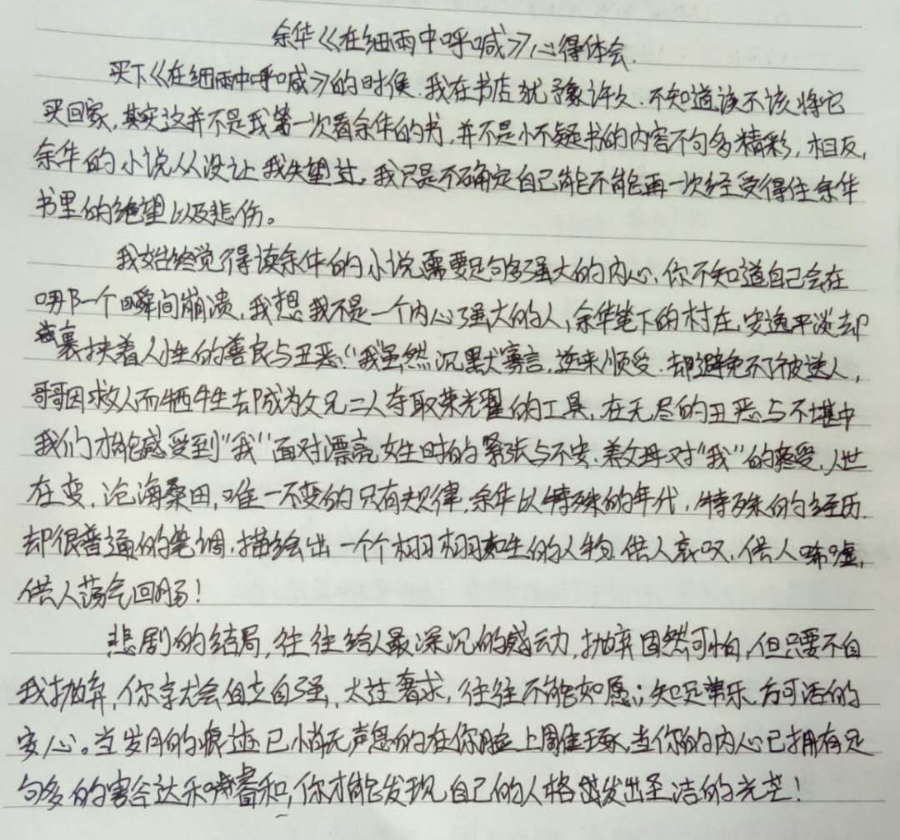 余华《在细雨中呼喊》心得体会.
买下《在细雨中呼喊》的时候,我在书店犹豫许久.不知道该不该将它
买回家,其实这并不是我第一次看余华的书,并不是怀疑书的内容不够多精彩,相反,
余华的小说从没让我失望过,我只是不确定自己能不能再一次经受得住余华
书里的绝望以及悲伤。
我始终觉得读余华的小说需要足够强大的内心,你不知道自己会在
哪一个瞬间崩溃,我想我不是一个内心强大的人,余华笔下的村庄,安逸平淡却
裹挟着人性的善良与丑恶!"我"虽然沉默寡言,逆来顺受.却避免不了被送人,
哥哥因救人而牺牲却成为父兄二人夺取荣光耀的工具,在无尽的丑恶与不堪中
我们才能感受到"我"面对漂亮女生时的紧张与不安.养父母对"我"的疼爱,人世
在变,沧海桑田,唯一不变的只有规律,余华以特殊的年代,特殊的经历.
却很普通的笔调,描绘出一个个栩栩如生的人物.供人哀叹,供人唏嘘,
供人荡气回肠!
悲剧的结局,往往给人最深沉的感动,抛弃固然可怕,但只要不自
我抛弃,你就会自立自强,太过奢求,往往不能如愿;知足常乐,方可活的
安心。当岁月的痕迹已悄无声息的在你脸上雕琢,当你的内心已拥有足
够多的豁达乐睿和,你才能发现自己的人格散发出圣洁的光芒!